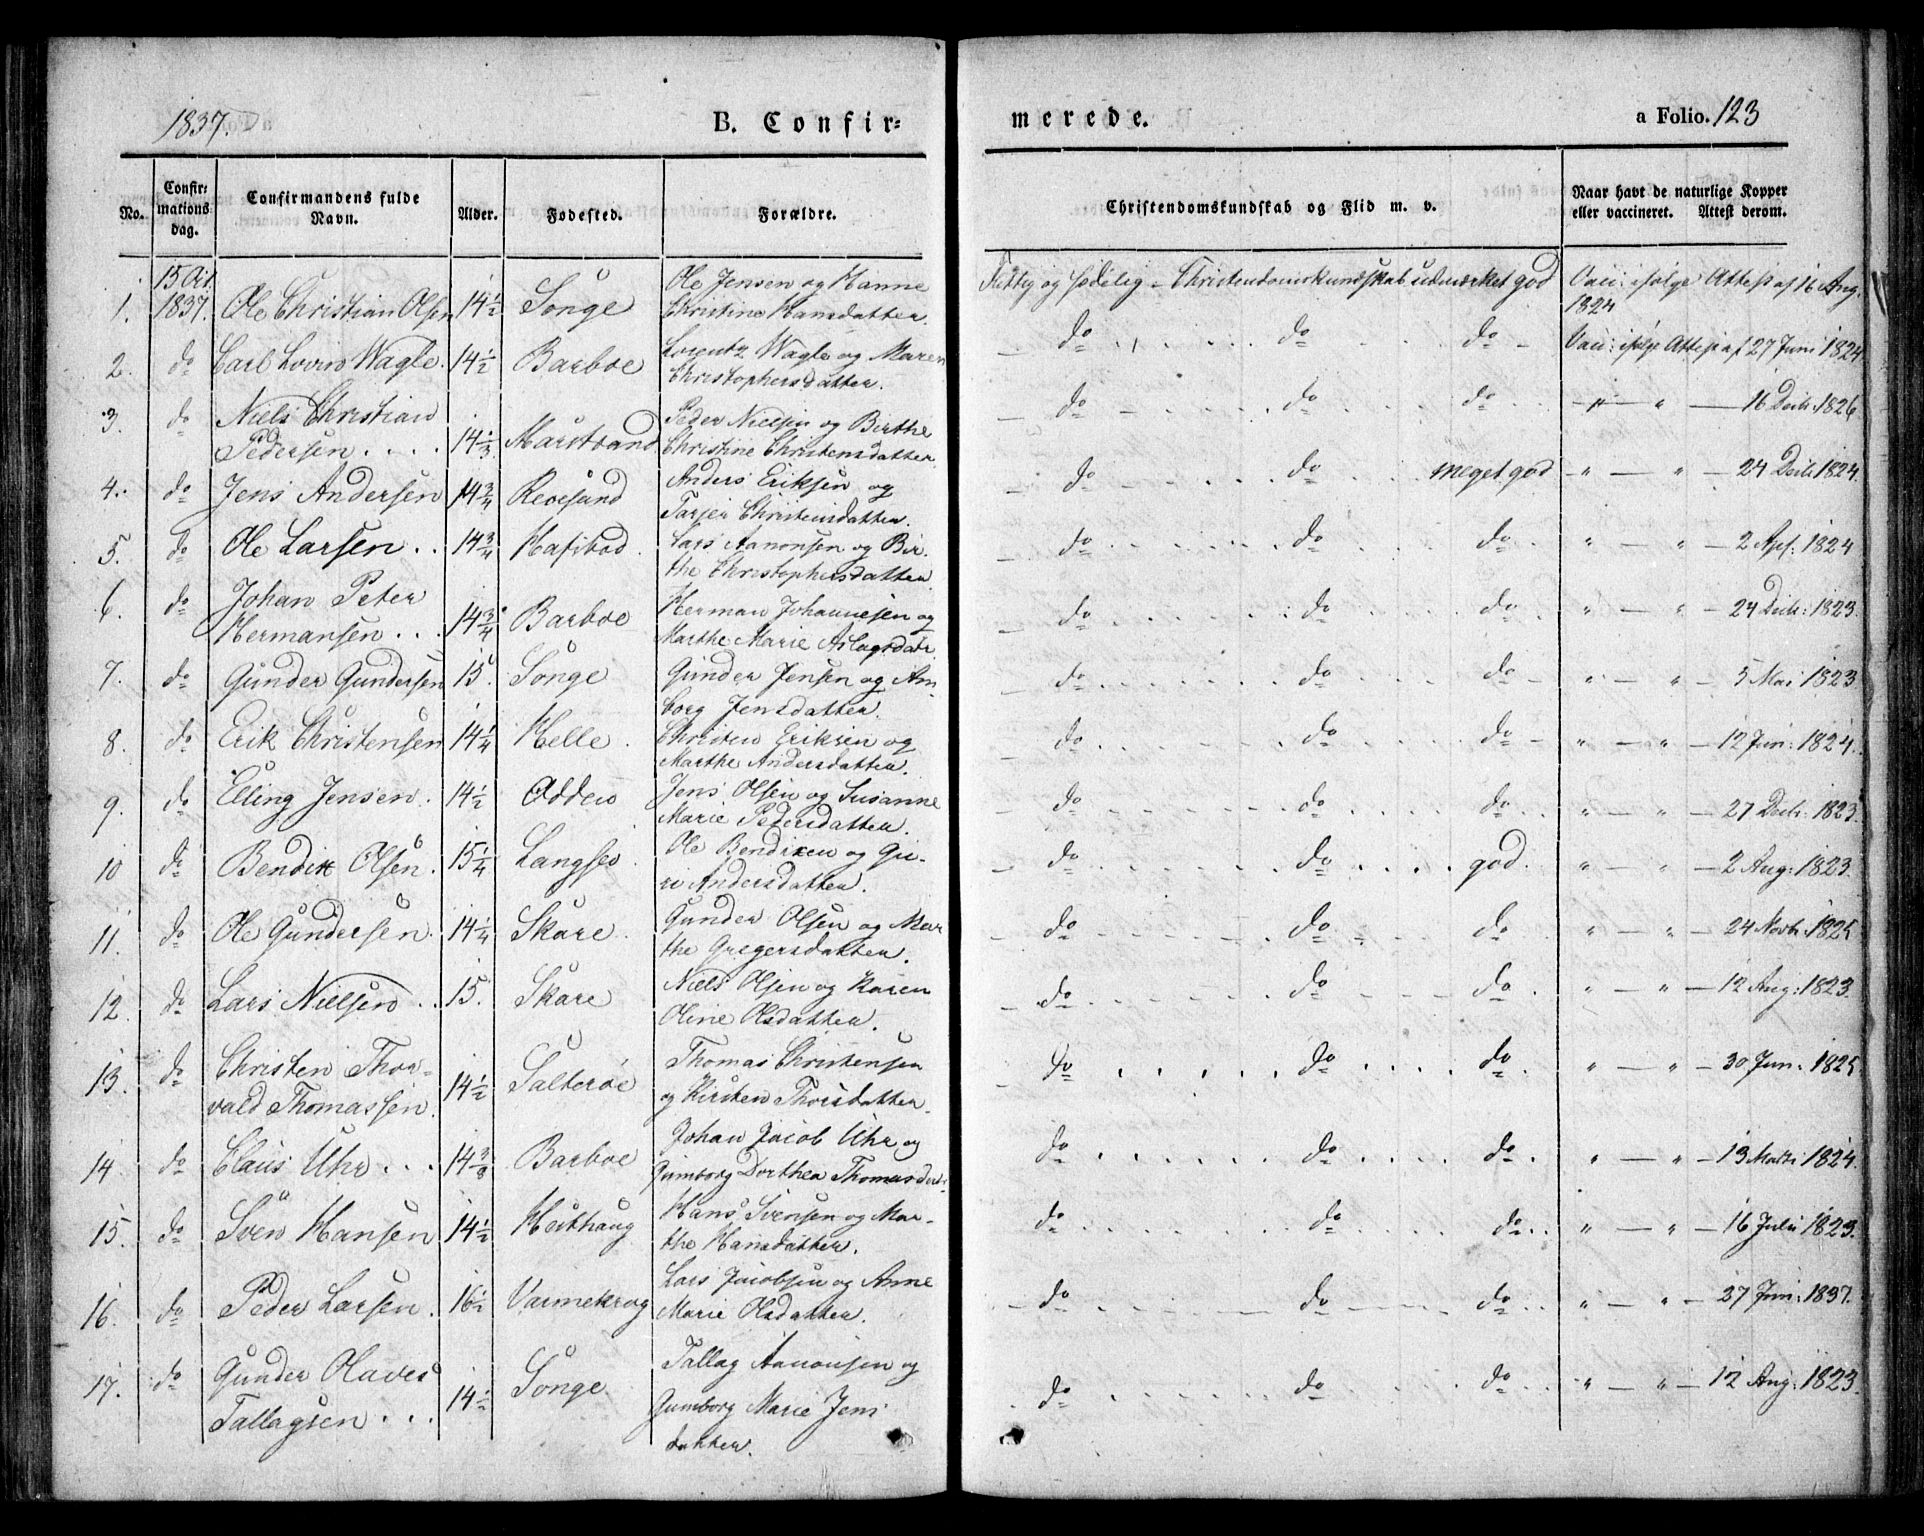 1837. B. Confir=
merede. a Folio. 123
No. Confir: mations dag. Confirmandens fulde Navn. Alder. Fødested. Forældre. Christendomskundskab og Flid m. v. Naar havt de naturlige Kopper eller vaccineret. Attest derom.
1. 15 Oct. 1837. Ole Christian Olsen 14½ Songe Ole Jensen og Hanne Christine Hansdatter. Flittig og sædelig – Christendomskundskab udmærket god Vacc: ifølge Attest af 16 Aug. 1824
2. do Carl Lovin Wagle. 14½ Barboe Lorentz Wagle og Maren Christophersdatter. do do do Vacc: ifølge Attest af 27 Juni 1824.
3. do Niels Christian Pedersen 14⅓ Marstrand Peder Nielsen og Birthe Christine Christensdatter. do do do " " 16 Decbr: 1826
4. do Jens Andersen 14¾ Revesund Anders Eriksen og Tarjer Christensdatter. do do meget god " " 24 Decbr 1824.
5. do Ole Larsen 14¾ Lars Aanonsen og Bir- the Christophersdatter do do do " " 2 Apr: 1824
6. do Johan Peter Hermansen 14¾ Barboe Herman Johannesen og Marthe Marie Aslagsdatr. do do do " " 24 Decbr: 1823.
7. do Gunder Gundersen 15. Songe Gunder Jensen og An- borg Jensdatter. do do do " " 5 Mai 1823
8. do Erik Christensen 14¼ Helle Christen Eriksen og Marthe Andersdatter. do do do " " 12 Jun: 1824.
9. do Elling Jensen. 14½ Odden Jens Olsen og Susanne Marie Pedersdatter. do do do " " 27 Decbr: 1823.
10 do Bendix Olsen. 15¼ Langsev Ole Bendixen og Gu- ri Andersdatter. do do god. " " 2 Aug: 1823.
11. do Ole Gundersen. 14¼ Skare Gunder Olsen og Mar the Gregersdatter. do do do " " 24 Novbr: 1825
12. do Lars Nielsen 15. Skare Niels Olsen og Karen Oline Olsdatter. do do do " " 12 Aug: 1823.
13. do Christen Thor- vald Thomassen. 14½ Salterøe Thomas Christensen og Kirsten Thorsdatter. do do do " " 30 Jun: 1825
14. do Claus Uhr 14⅜ Barboe Johan Jacob Uhr og Gumborg Dorthea Thomasdatr. do do do " " 13 Marts 1824.
15. do Sven Hansen 14½ Heithaug Hans Svensen og Mar- the Hansdatter. do do do " " 16 Julii 1823.
16. do Peder Larsen. 16½ Varmekrog Lars Jacobsen og Anne Marie Olsdatter. do do do " " 27 Juni: 1837.
17. do Gunder Olaves Tallagsen 14½ Songe Tallag Aanonsen og Gumborg Marie Jens datter. do do do " " 12 Aug: 1823.